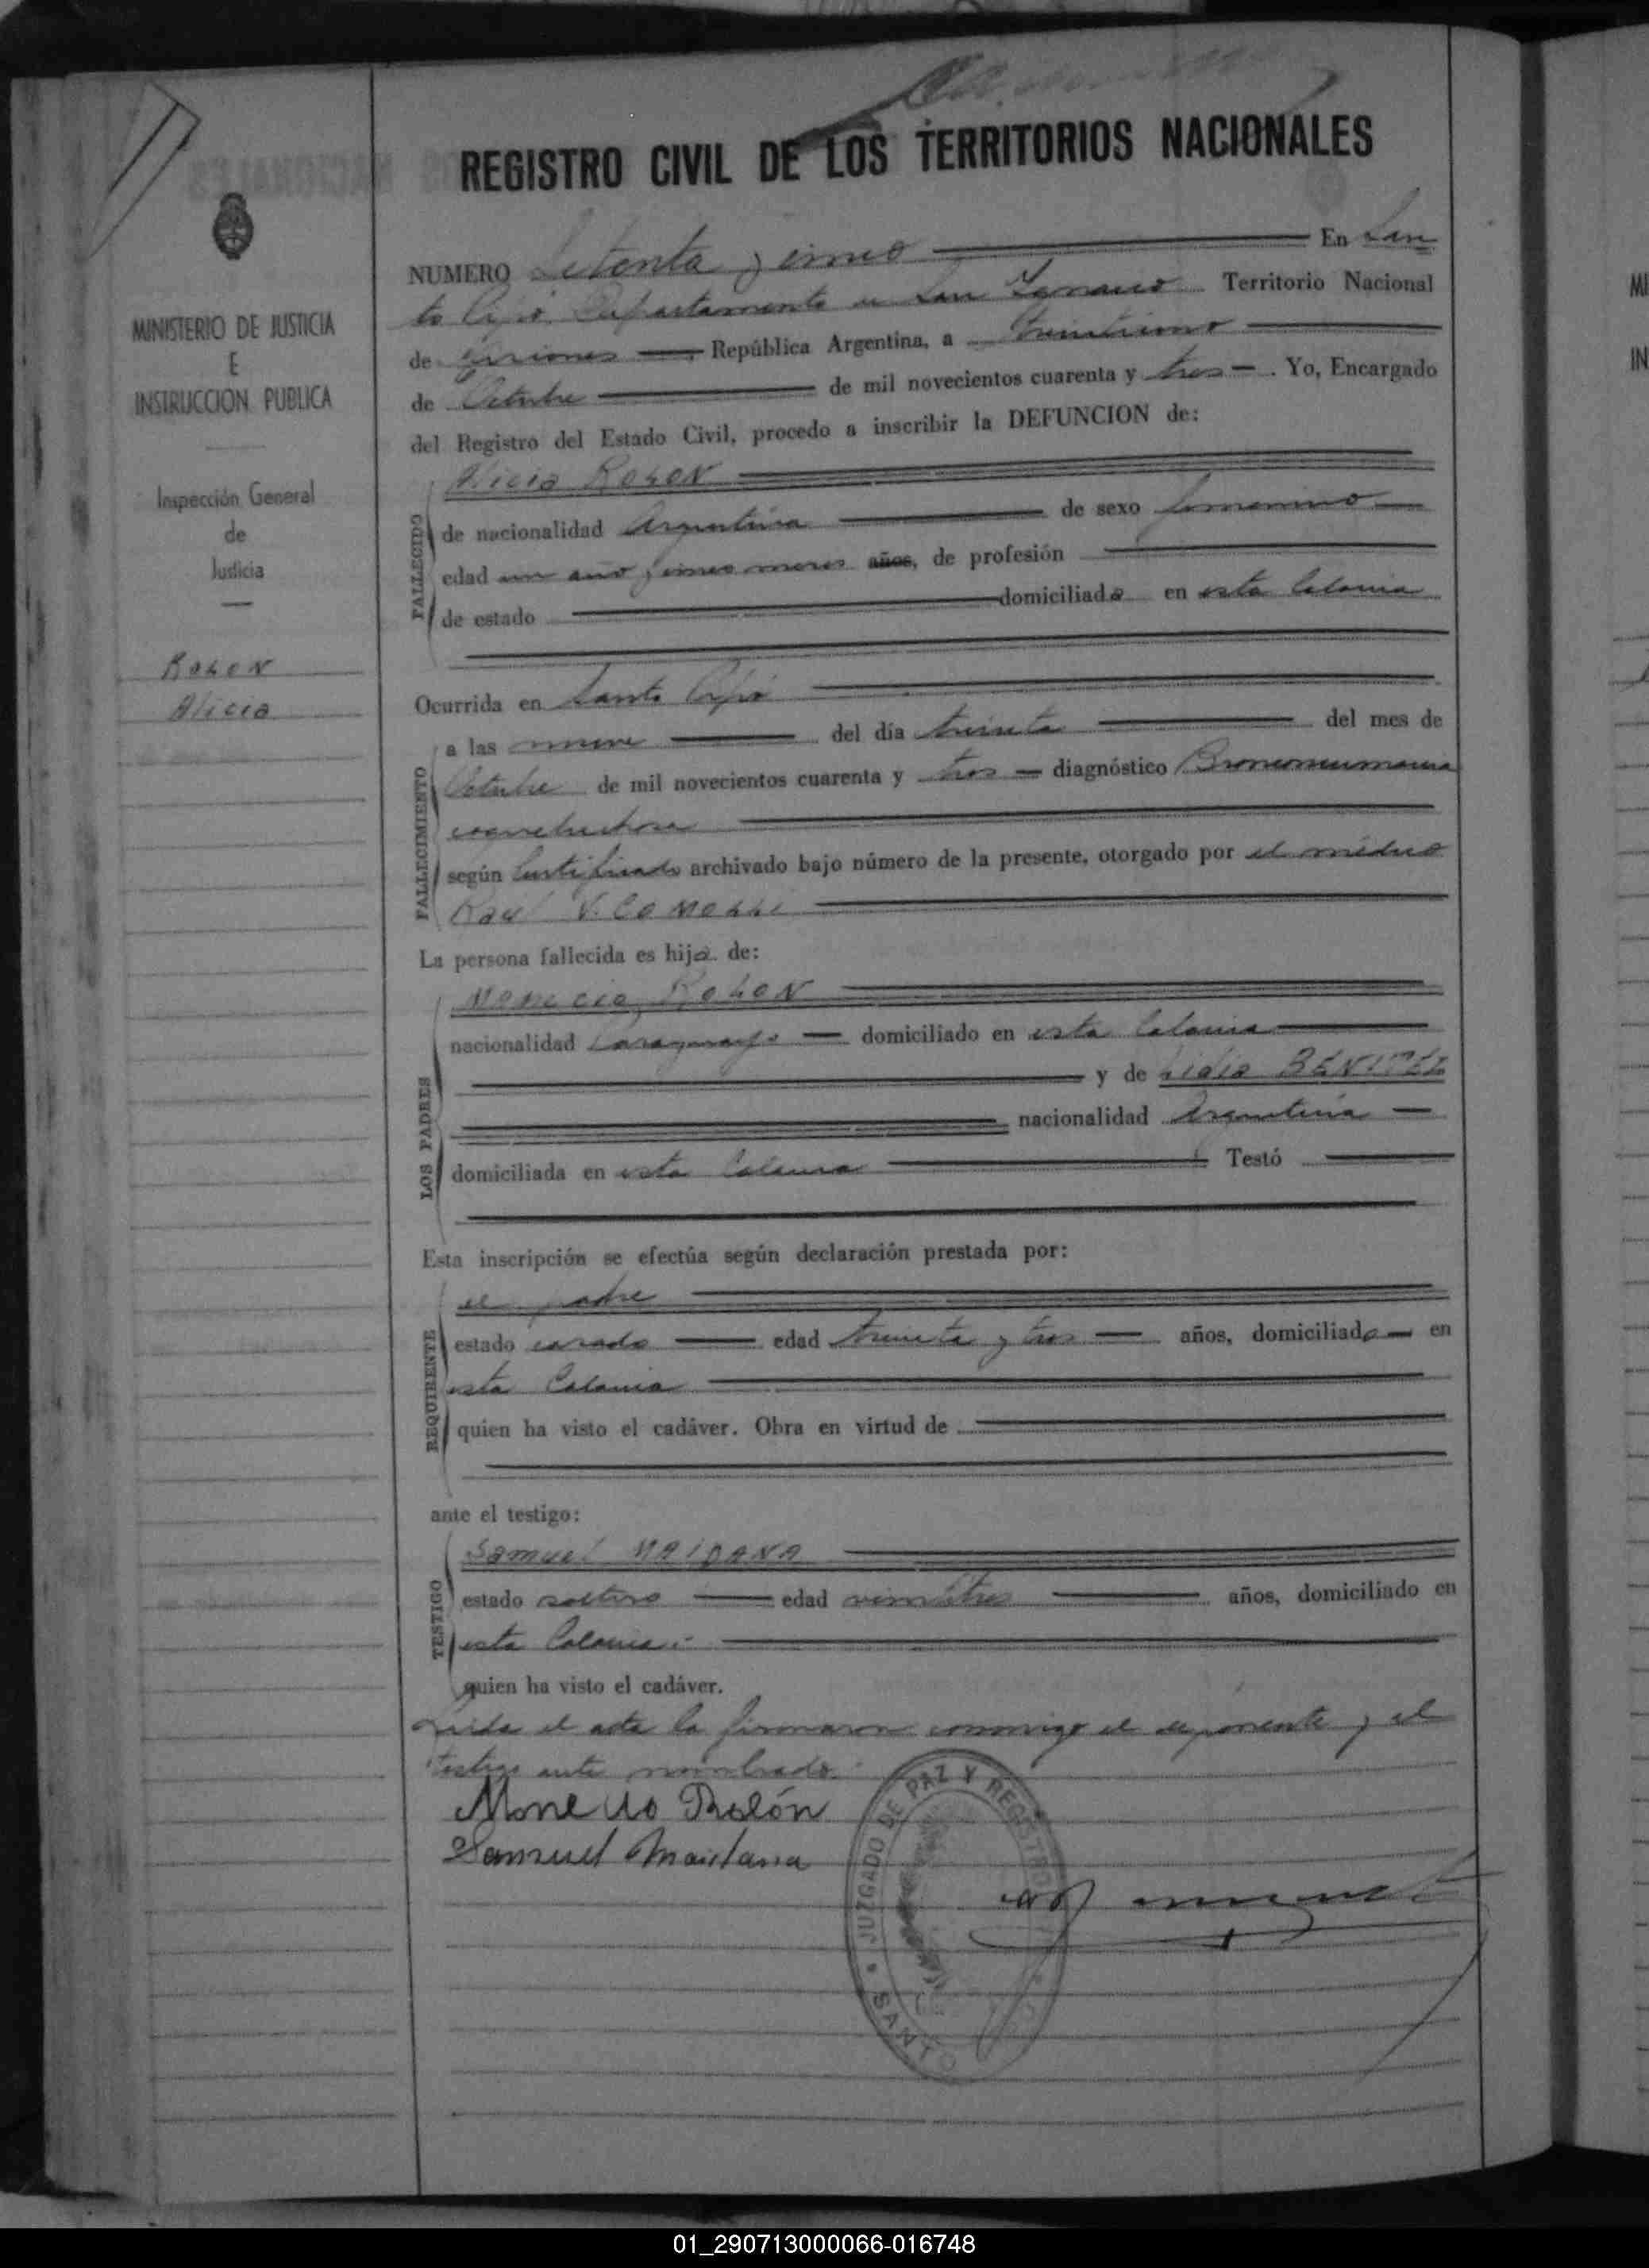 REGISTRO CIVIL DE LOS TERRITORIOS NACIONALES
MINISTERIO DE JUSTICIA
E
INSTRUCCION PUBLICA
Inspección General
de
Justicia
ROLON
Alicia
NUMERO Setenta y cinco En San
to Pipó Departamento de San Ignacio Territorio Nacional
de Misiones República Argentina, a treintiuno
de Octubre de mil novecientos cuarenta y tres . Yo, Encargado
del Registro del Estado Civil, procedo a inscribir la DEFUNCION de:
Alicia ROLON
FALLECIDO
de nacionalidad Argentina de sexo femenino
edad un año y cinco meses años, de profesión
de estado domiciliada en esta Colonia
Ocurrida en Santo Pipó
FALLECIMIENTO
a las nueve del día treinta del mes de
Octubre de mil novecientos cuarenta y tres diagnóstico Bronconeumonia
coqueluchosa
según Certificado archivado bajo número de la presente, otorgado por el médico
Raul V.
La persona fallecida es hija de:
LOS PADRES
ROLON
nacionalidad Paraguayo domiciliado en esta Colonia
y de Lidia BENITEZ
nacionalidad Argentina
domiciliada en esta Colonia Testó
Esta inscripción se efectúa según declaración prestada por:
REQUIRENTE
el padre
estado casado edad treinta y tres años, domiciliado en
esta Colonia
quien ha visto el cadáver. Obra en virtud de
ante el testigo:
TESTIGO
Samuel MAIDANA
estado soltero edad veintitres años, domiciliado en
esta Colonia.-
quien ha visto el cadáver.
Leida el acta la firmaron conmigo el exponente y el
testigo ante nombrado.
Rolón
Samuel Maidana
JUZGADO DE PAZ Y REGISTRO
SANTO
01_290713000066-016748